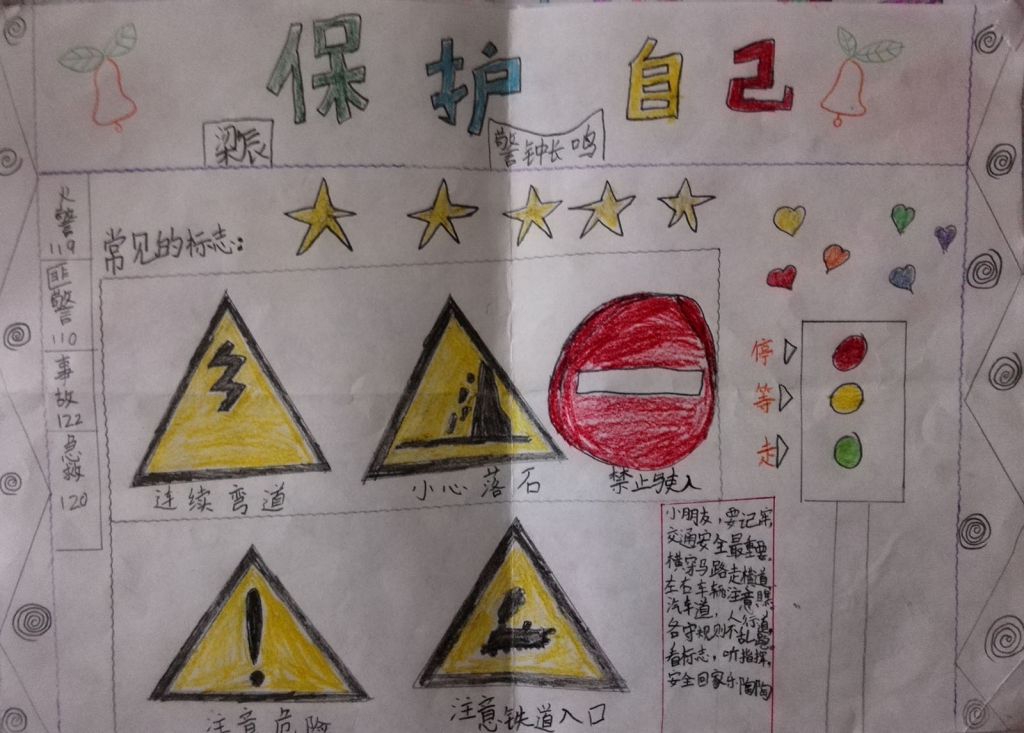 保护自己
梁辰
警钟长鸣
火警
119
匪警
110
事故
122
急救
120
常见的标志:
连续弯道
小心落石
禁止驶入
注意危险
注意铁道入口
停
等
走
小朋友,要记牢
交通安全最重要.
横穿马路走横道
左右车辆注意瞧
汽车道,人行道,
各守规则不乱跑
看标志,听指挥,
安全回家乐陶陶